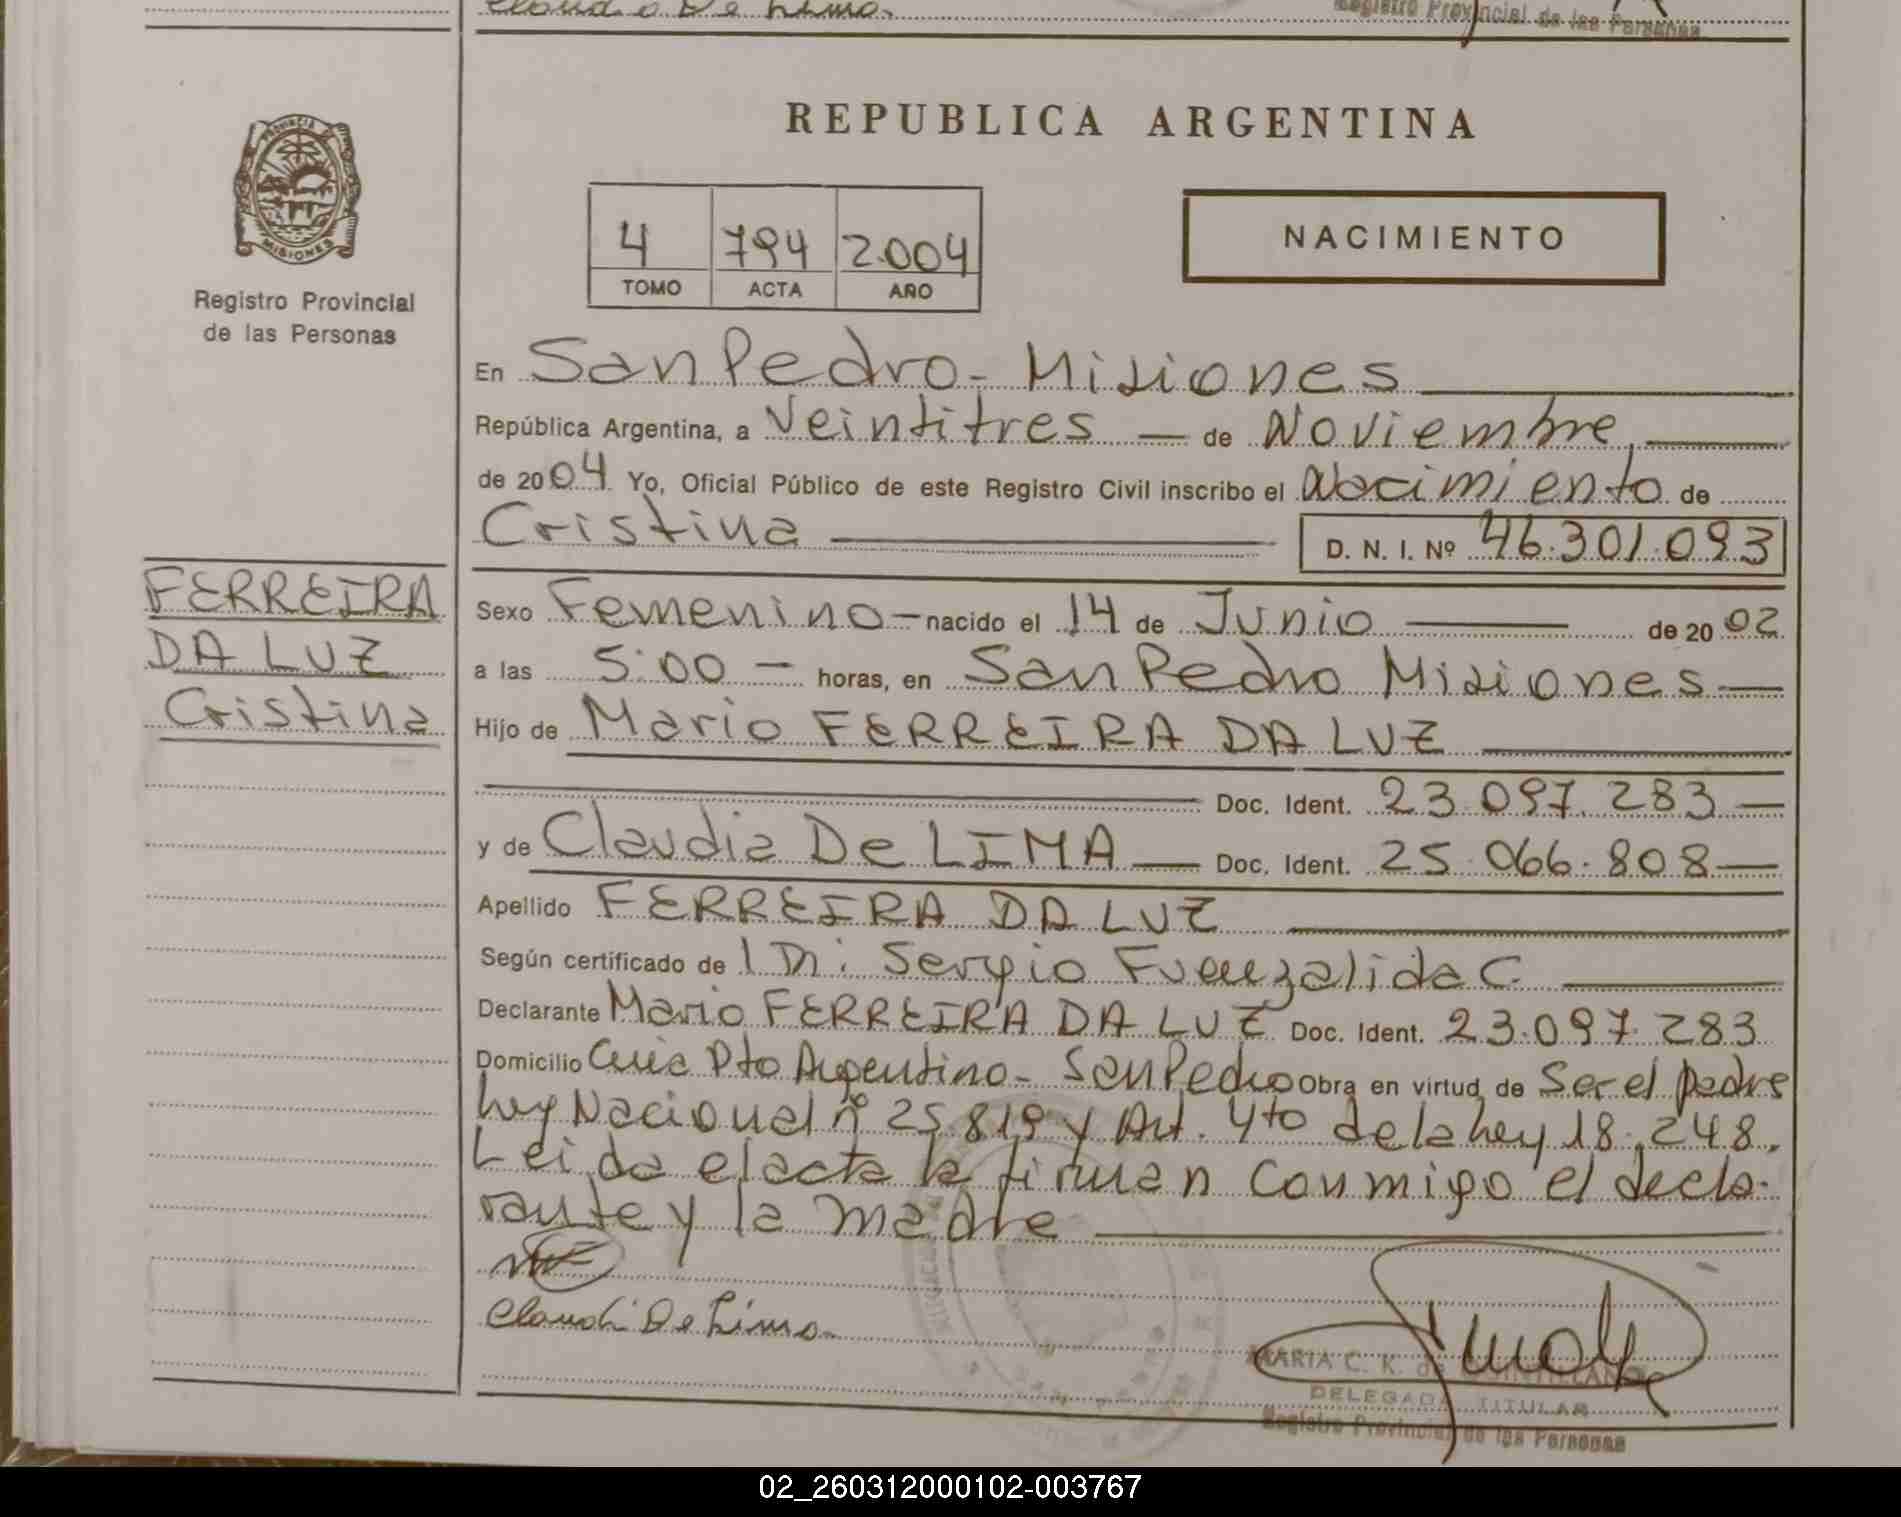 Claudio De Lima.
Registro Provincial de las Personas
REPUBLICA ARGENTINA
PROVINCIA DE
MISIONES
Registro Provincial
de las Personas
4 794 2.004
TOMO ACTA AÑO
NACIMIENTO
En San Pedro - Misiones
República Argentina, a Veintitres — de Noviembre,
de 2004 Yo, Oficial Público de este Registro Civil inscribo el Nacimiento de
Cristina D. N. I. Nº 46.301.093
FERREIRA
DA LUZ
Cristina
Sexo Femenino — nacido el 14 de Junio — de 2002
a las 5:00 — horas, en San Pedro Misiones —
Hijo de Mario FERREIRA DA LUZ
Doc. Ident. 23.097.283 —
y de Claudia De LIMA — Doc. Ident. 25.066.808 —
Apellido FERREIRA DA LUZ
Según certificado de 1 Dr: Sergio Fuenzalida C.
Declarante Mario FERREIRA DA LUZ Doc. Ident. 23.097.283
Domicilio Cruce Pto Argentino - San Pedro Obra en virtud de Ser el padre
Ley Nacional nº 25.819 y Art. 4to de la Ley 18.248.
Leida el acta la firman conmigo el decla-
rante y la madre
Claudi De Lima
MARIA C. K. de QUINTILLAN
DELEGADA TITULAR
Registro Provincial de las Personas
02_260312000102-003767